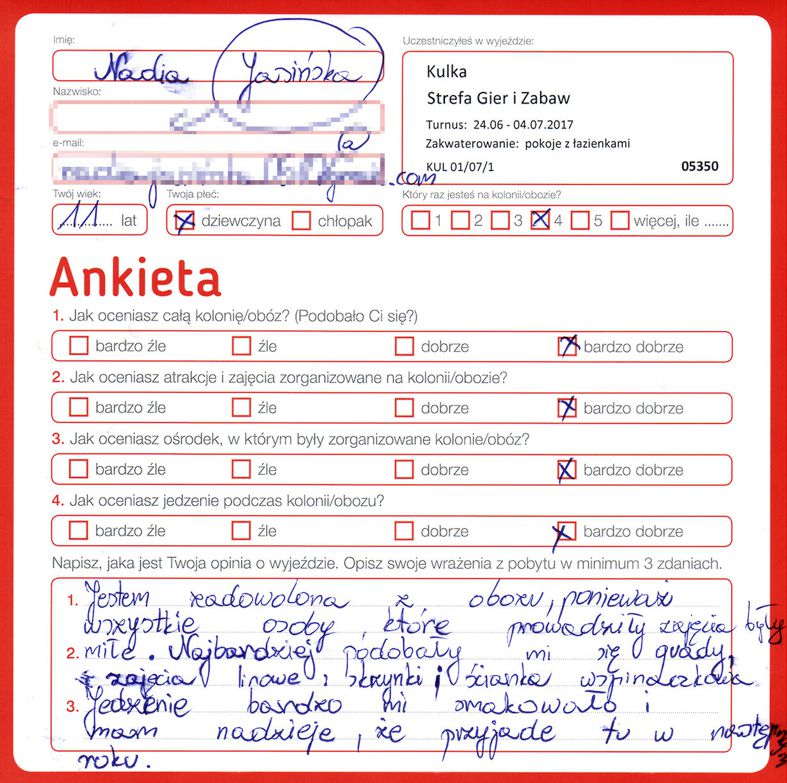 Imię:
Nadia Jasińska
Uczestniczyłeś w wyjeździe:
Kulka
Strefa Gier i Zabaw
Turnus: 24.06 - 04.07.2017
Zakwaterowanie: pokoje z łazienkami
KUL 01/07/1 05350
Nazwisko:
e-mail:
.com
Twój wiek:
11 lat
Twoja płeć:
dziewczyna chłopak
Który raz jesteś na kolonii/obozie?
1 2 3 4 5 więcej, ile .......
Ankieta
1. Jak oceniasz całą kolonię/obóz? (Podobało Ci się?)
bardzo źle źle dobrze bardzo dobrze
2. Jak oceniasz atrakcje i zajęcia zorganizowane na kolonii/obozie?
bardzo źle źle dobrze bardzo dobrze
3. Jak oceniasz ośrodek, w którym były zorganizowane kolonie/obóz?
bardzo źle źle dobrze bardzo dobrze
4. Jak oceniasz jedzenie podczas kolonii/obozu?
bardzo źle źle dobrze bardzo dobrze
Napisz, jaka jest Twoja opinia o wyjeździe. Opisz swoje wrażenia z pobytu w minimum 3 zdaniach.
1. Jestem zadowolona z obozu, ponieważ
wszystkie osoby, które prowadziły zajęcia były
2. miłe. Najbardziej podobały mi się quady,
zajęcia linowe, skrzynki i ścianka wspinaczkowa
3. Jedzenie bardzo mi smakowało i
mam nadzieje, że przyjade tu w
roku.